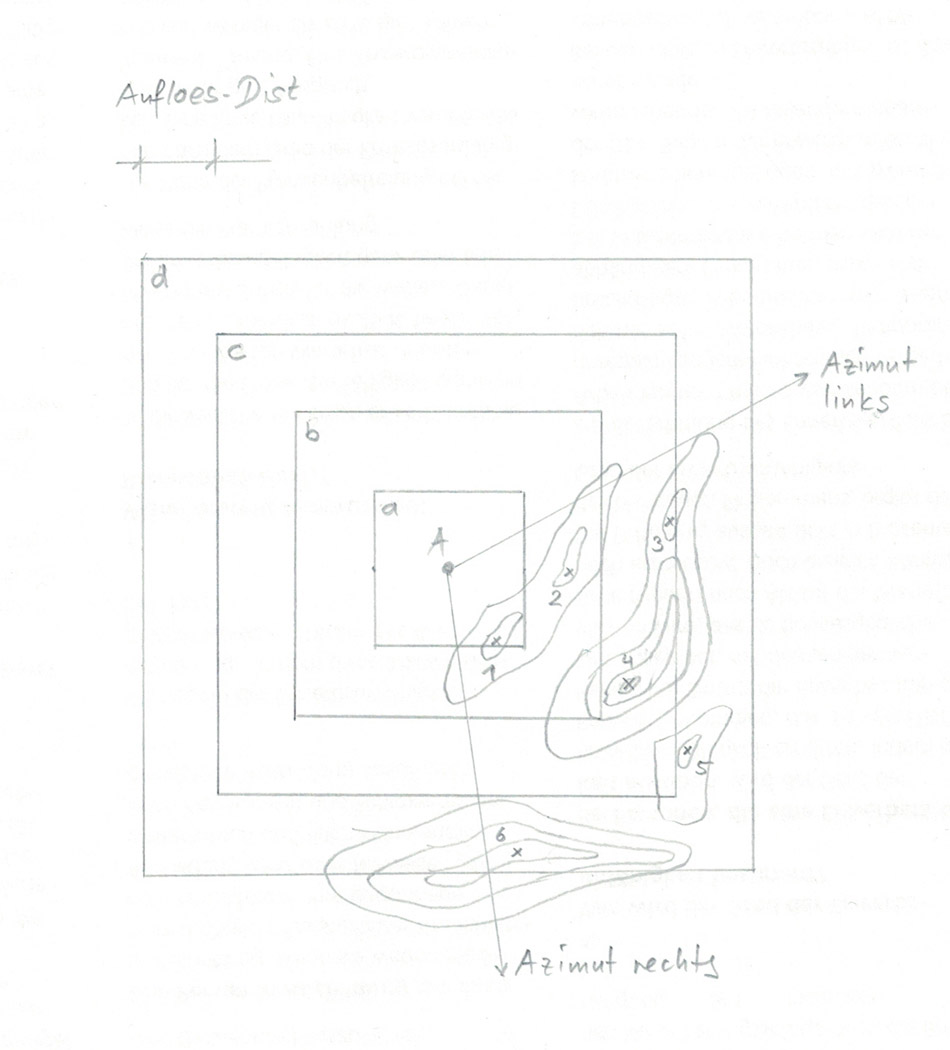 Aufloes-Dist
d
c
Azimut
links
b
a
A
3
2
4
1
5
6
Azimut rechts